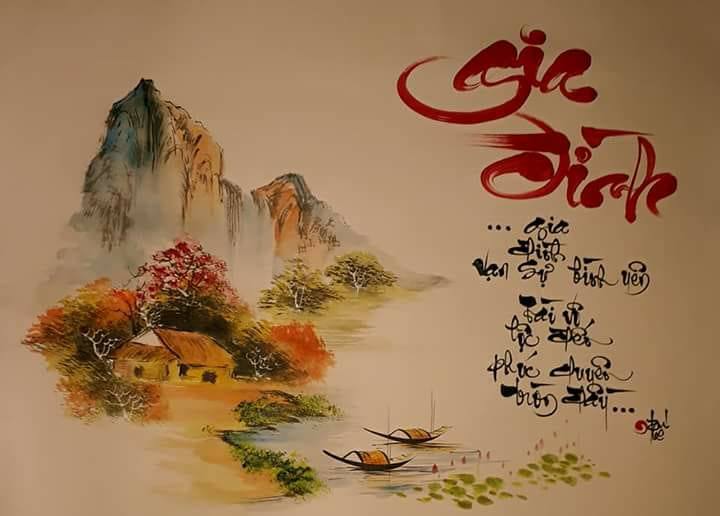 Gia
Đình
... gia
đình
vạn sự bình yên
tài
lộc đến
phúc duyên
tròn đầy...